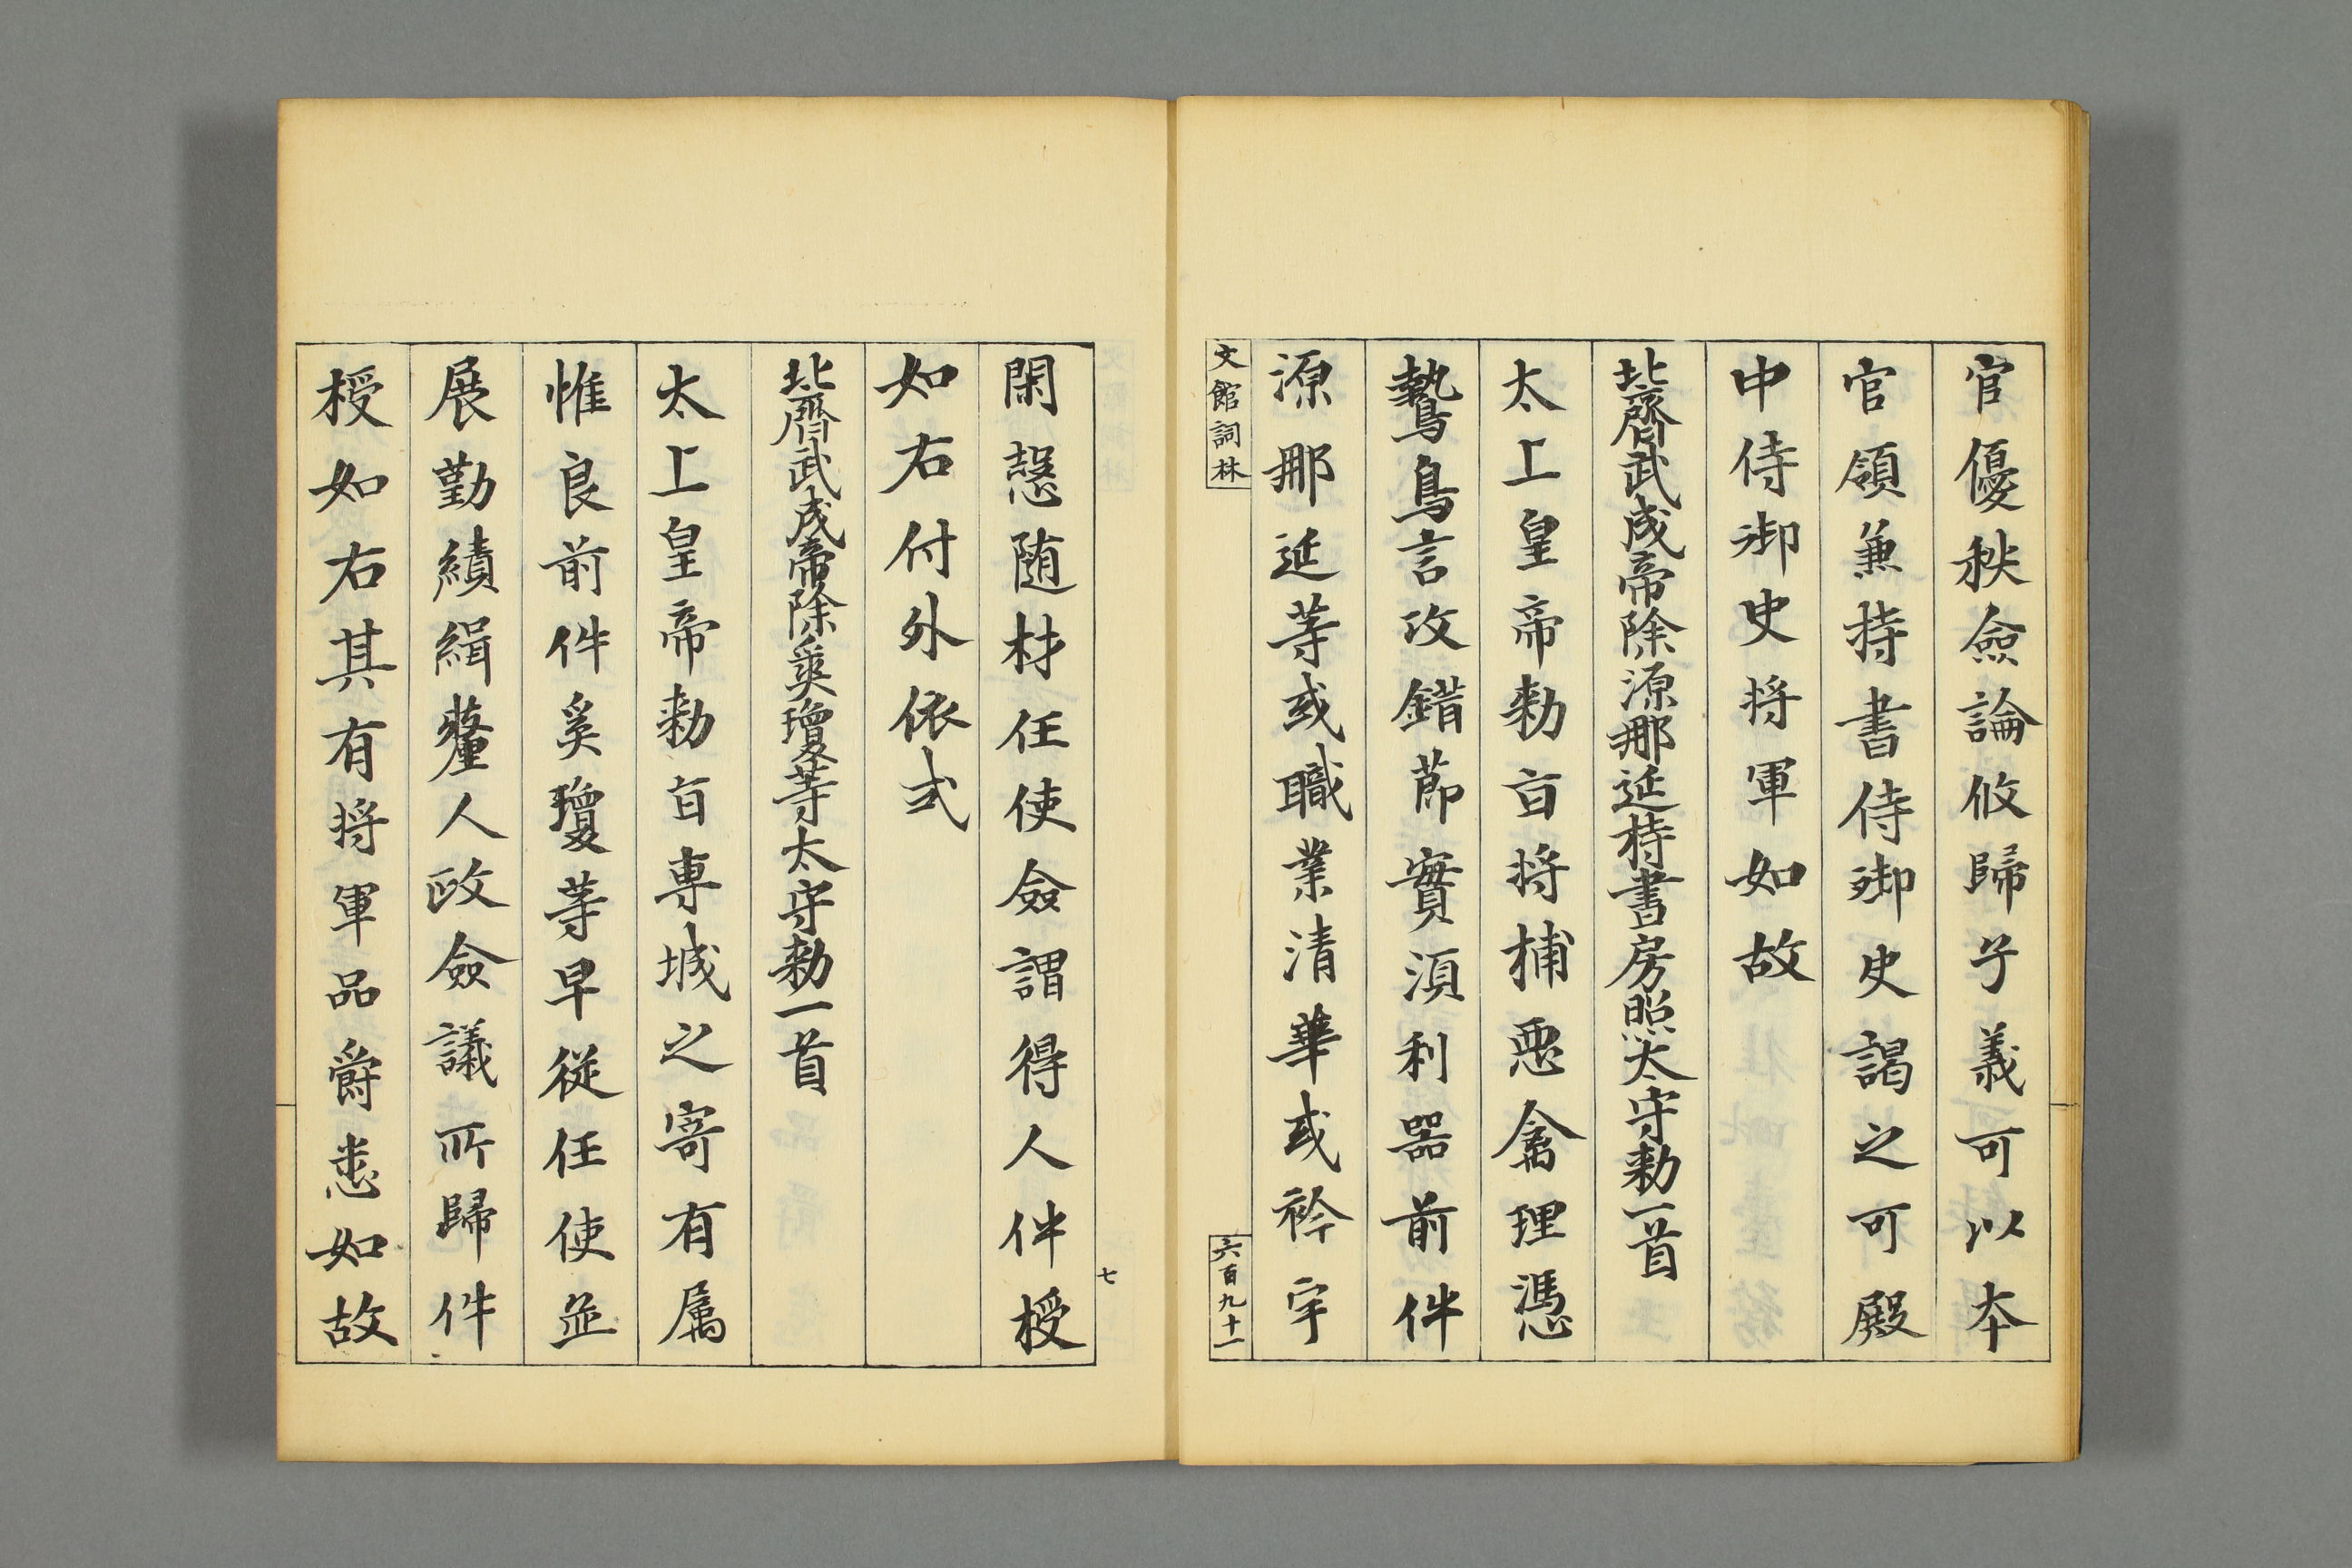 官優秩僉論攸歸兮義可以本
官領兼持書侍御史謁之可殿
中侍御史将軍如故
北齊武成帝除源那延持書房照太守勅一首
太上皇帝勅旨将捕惡禽理憑
鷙鳥言攻錯節實湏利器前件
源那延等或職業清華或衿宇
文館詞林
六百九十一
七
閑愨随材任使僉謂得人件授
如右付外依式
北齊武成帝除奚瓊等太守勅一首
太上皇帝勅旨專城之寄有属
惟良前件奚瓊等早從任使並
展勤績緝釐人政僉議所歸件
授如右其有将軍品爵悉如故